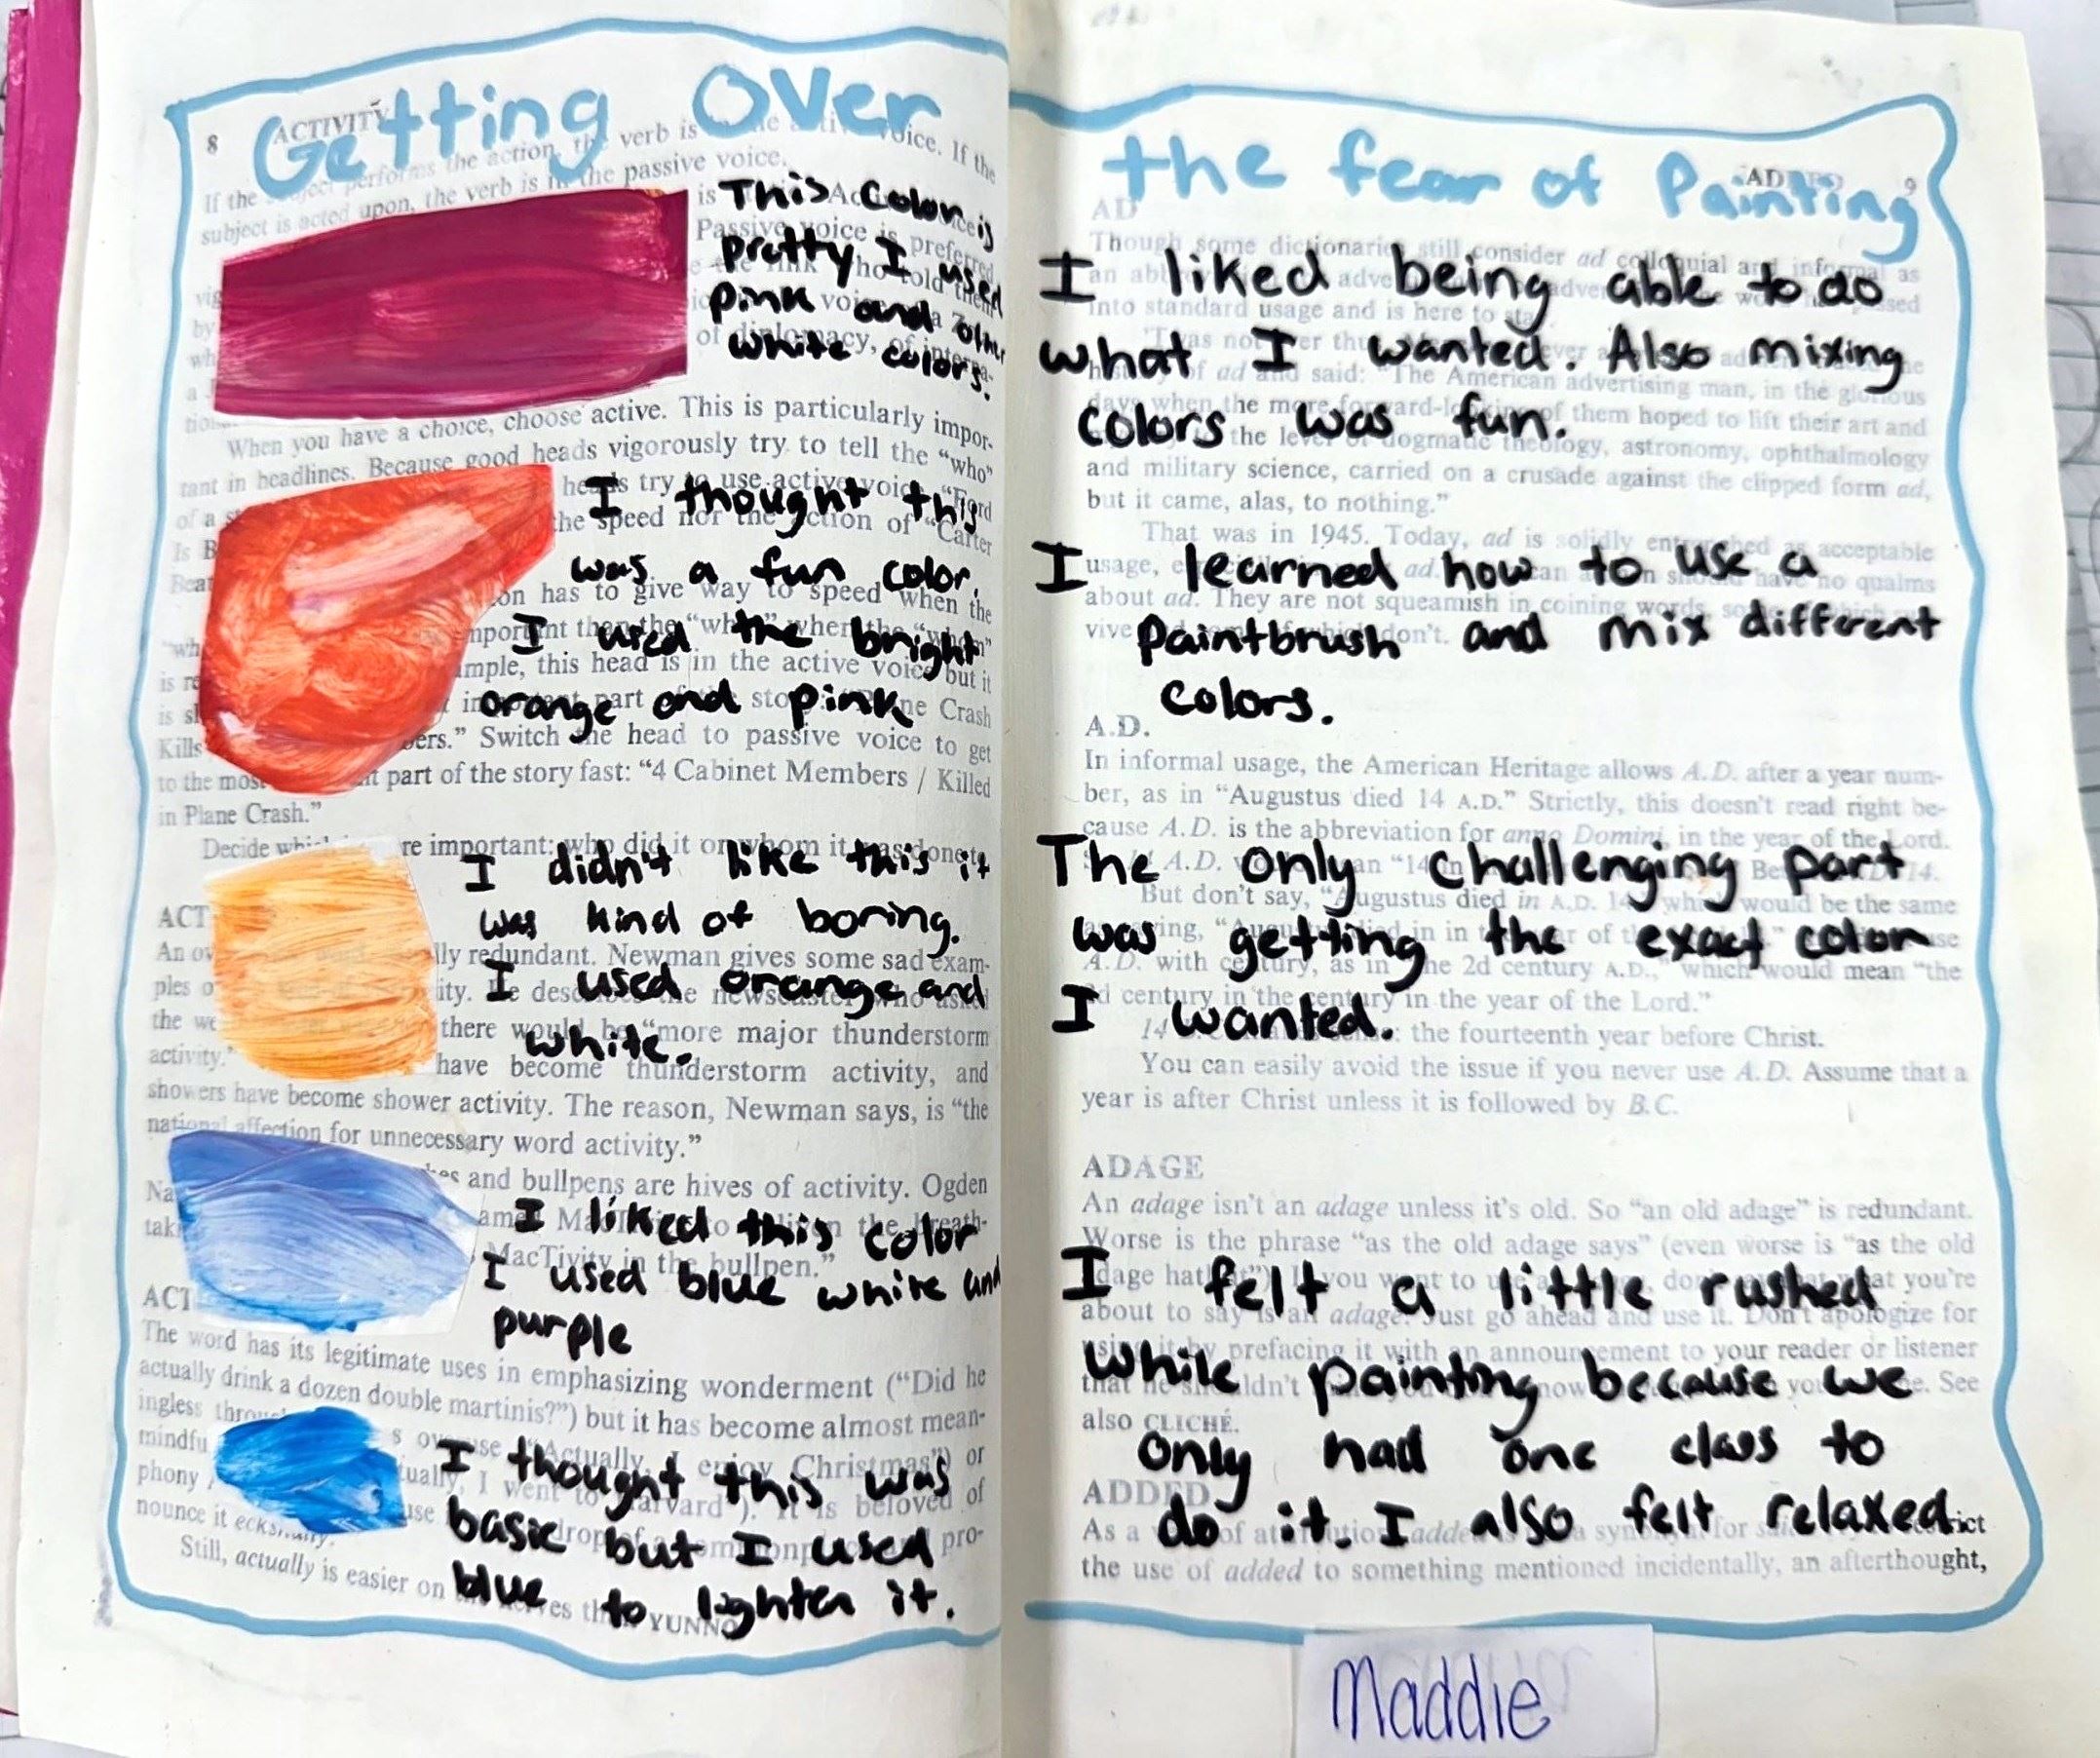 Getting Over
This color is
pretty I used
pink and other
white colors.
I thought this
was a fun color.
I used the bright
orange and pink
I didn't like this it
was kind of boring.
I used orange and
white.
I liked this color
I used blue white and
purple
I thought this was
basic but I used
blue to lighten it.
8 ACTIVITY
If the subject performs the action, the verb is in the active voice. If the
subject is acted upon, the verb is in the passive voice.
Passive voice is preferred
When you have a choice, choose active. This is particularly impor-
tant in headlines. Because good heads vigorously try to tell the “who”
heads try to use active voice
the speed nor the action of “Carter
has to give way to speed when the
important than the
this head is in the active voice but it
Crash
Kills
Switch the head to passive voice to get
to the most part of the story fast: “4 Cabinet Members / Killed
in Plane Crash.”
Decide which is more important: who did it or whom it was done to.
ACT
redundant. Newman gives some sad exam-
ples
there would be “more major thunderstorm
activity.” have become thunderstorm activity, and
showers have become shower activity. The reason, Newman says, is “the
national affection for unnecessary word activity.”
and bullpens are hives of activity. Ogden
MacTivity in the bullpen.”
ACT
The word has its legitimate uses in emphasizing wonderment (“Did he
actually drink a dozen double martinis?”) but it has become almost mean-
ingless
“Actually, I enjoy Christmas”) or
beloved of
phony pro-
nounce it
Still, actually is easier on
the fear of Painting
I liked being able to do
what I wanted. Also mixing
colors was fun.
I learned how to use a
paintbrush and mix different
colors.
The only challenging part
was getting the exact color
I wanted.
I felt a little rushed
while painting because we
only had one class to
do it. I also felt relaxed.
9
AD
Though some dictionaries still consider ad colloquial and informal as
into standard usage and is here to stay
of ad and said: “The American advertising man, in the glorious
days when the more forward-looking of them hoped to lift their art and
the level of dogmatic theology, astronomy, ophthalmology
and military science, carried on a crusade against the clipped form ad,
but it came, alas, to nothing.”
That was in 1945. Today, ad is solidly entrenched as acceptable
usage, have no qualms
about ad. They are not squeamish in coining words,
don't.
A.D.
In informal usage, the American Heritage allows A.D. after a year num-
ber, as in “Augustus died 14 A.D.” Strictly, this doesn't read right be-
cause A.D. is the abbreviation for anno Domini, in the year of the Lord.
But don't say, “Augustus died in A.D. 14,” which would be the same
A.D. with century, as in the 2d century A.D., which would mean “the
2d century in the century in the year of the Lord.”
the fourteenth year before Christ.
You can easily avoid the issue if you never use A.D. Assume that a
year is after Christ unless it is followed by B.C.
ADAGE
An adage isn't an adage unless it's old. So “an old adage” is redundant.
Worse is the phrase “as the old adage says” (even worse is “as the old
adage hath it”). If you want to use what you're
about to say is an adage. Just go ahead and use it. Don't apologize for
using it by prefacing it with an announcement to your reader or listener
See
also CLICHÉ.
ADDED
As a of attribution added for
the use of added to something mentioned incidentally, an afterthought,
Maddie